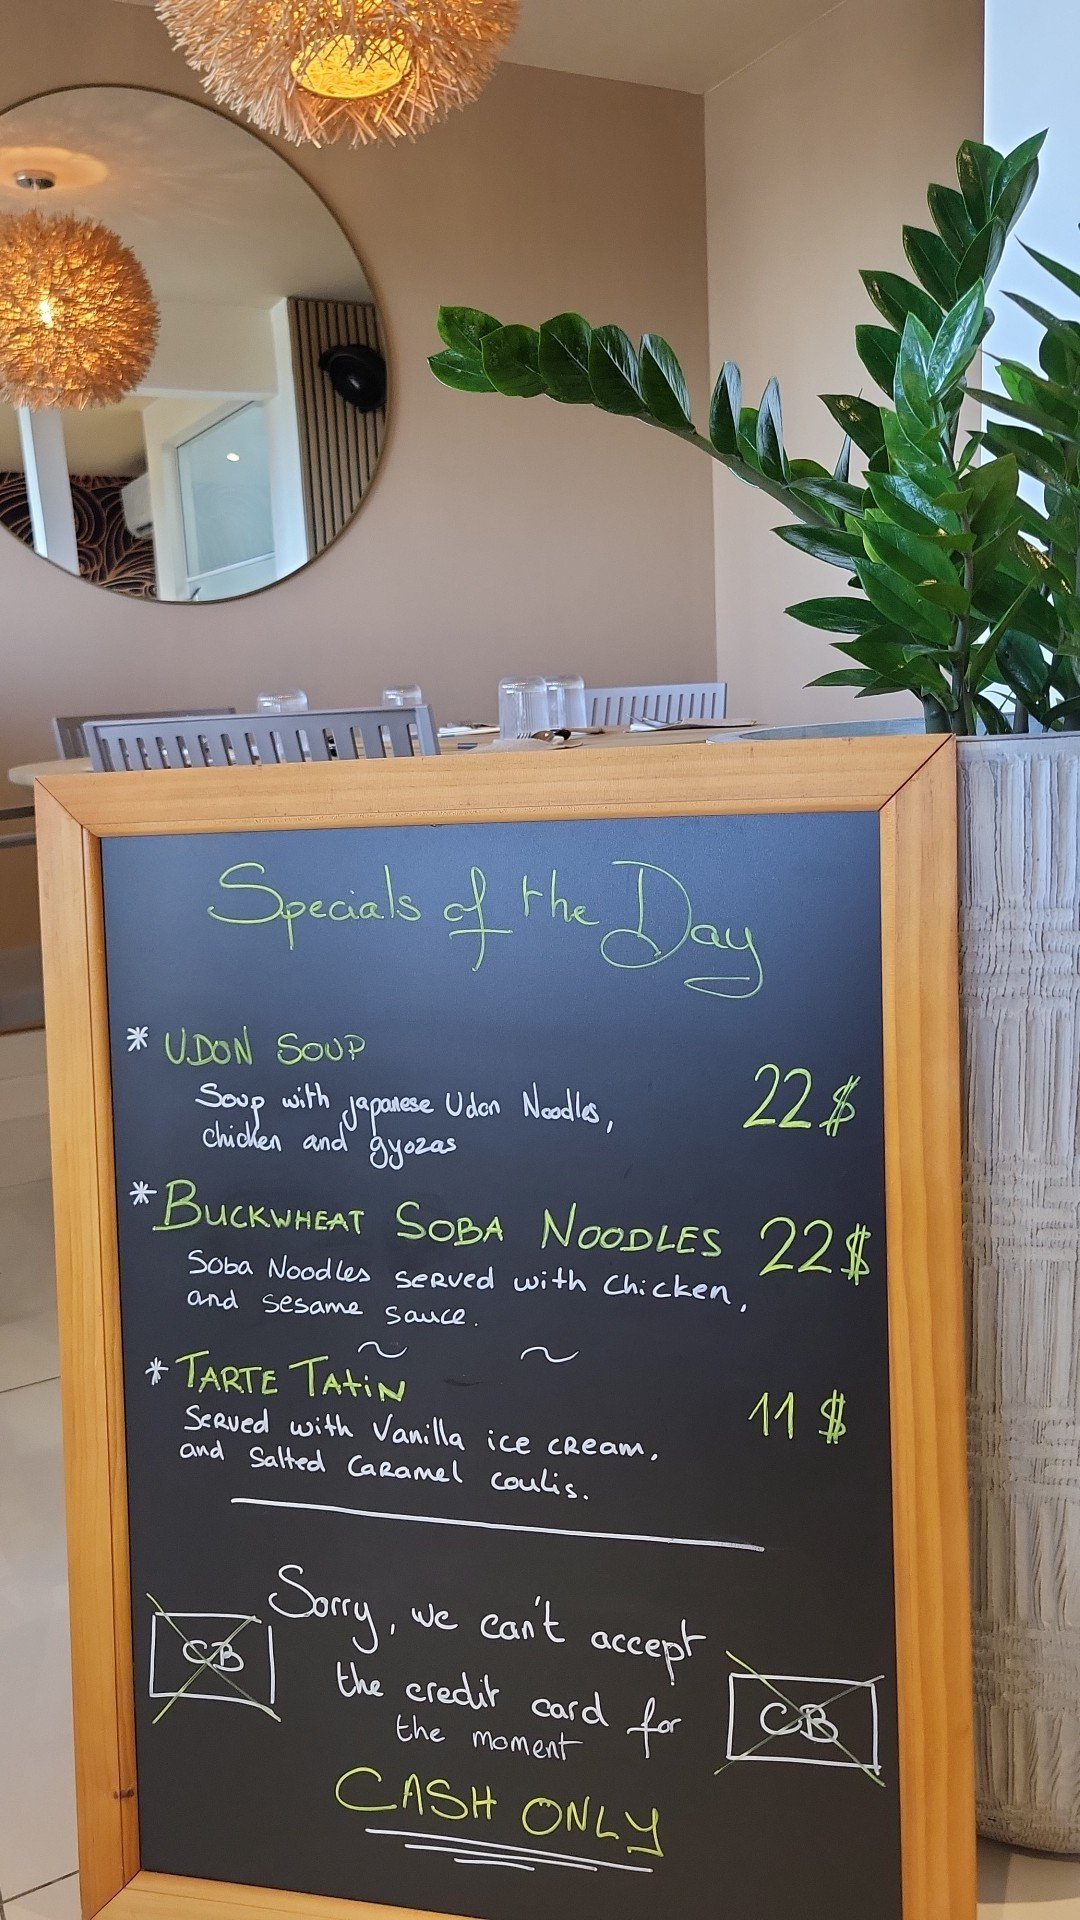 Specials of the Day
* UDON SOUP
Soup with japanese Udon Noodles,
chicken and gyozas
22$
* BUCKWHEAT SOBA NOODLES 22$
Soba Noodles served with chicken,
and sesame sauce.
~ ~
* TARTE TATIN
Served with Vanilla ice cream,
and salted caramel coulis.
11 $
Sorry, we can't accept
the credit card for
the moment
CB
CB
CASH ONLY